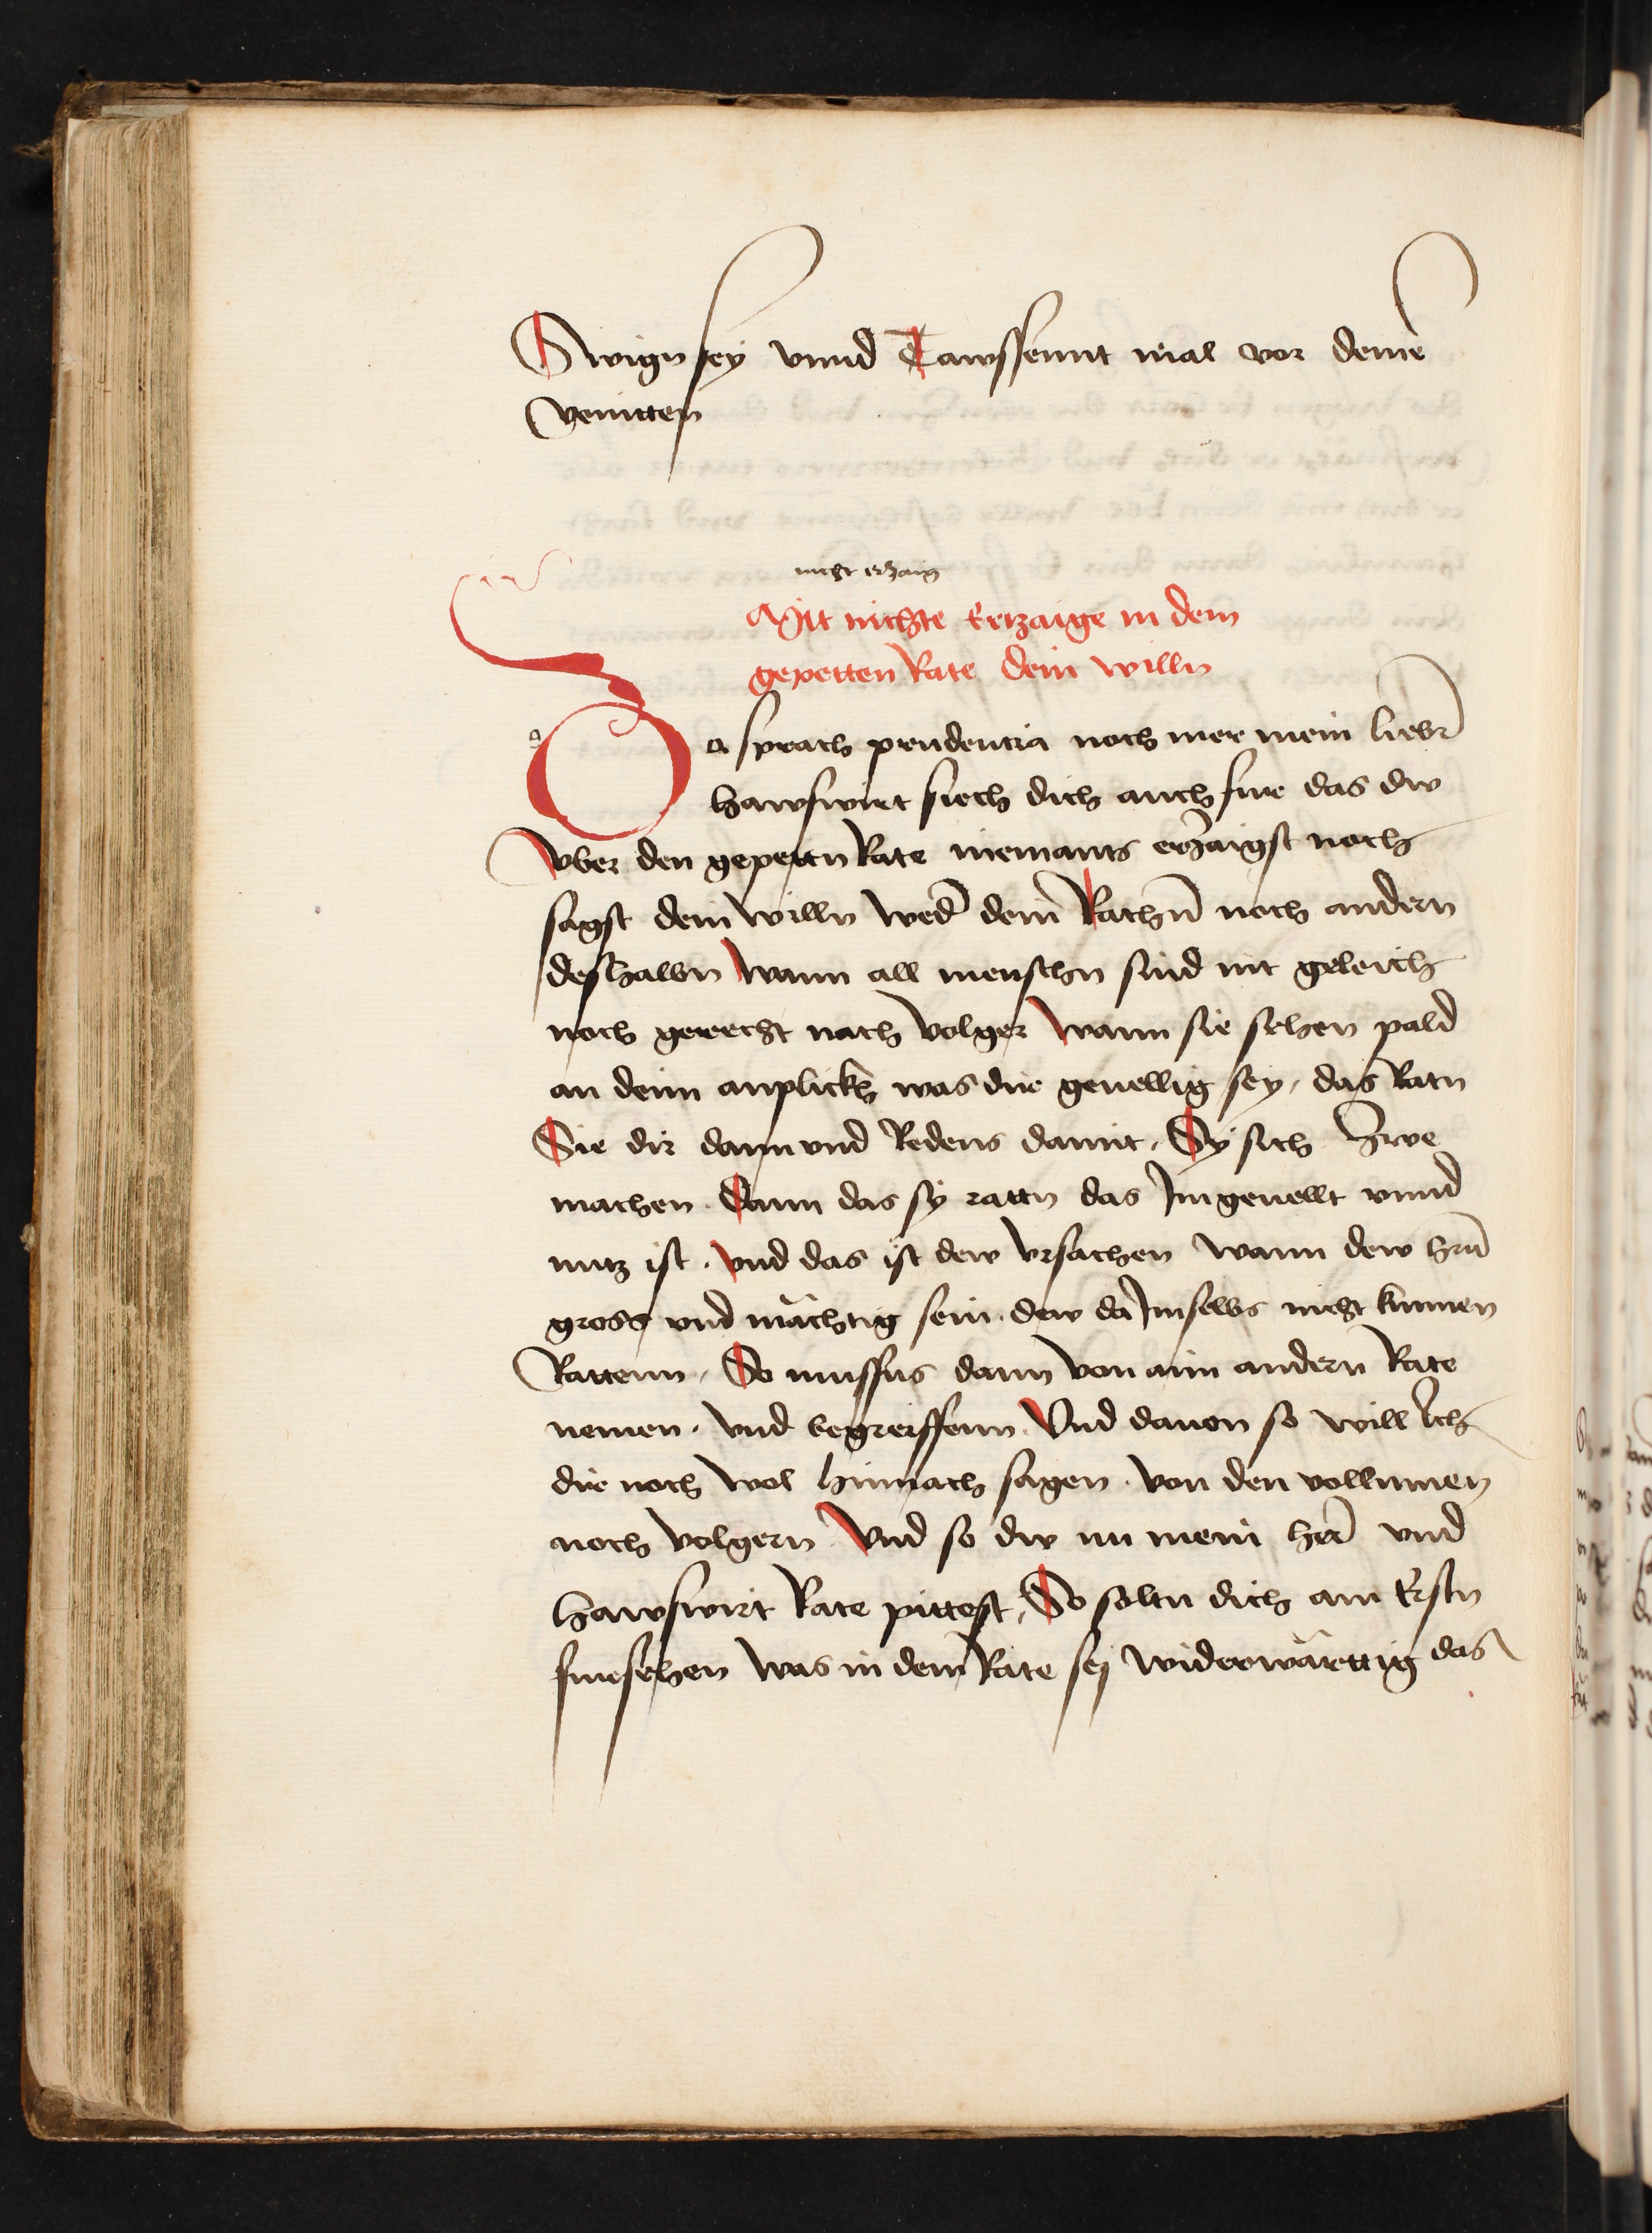 Swign sey vnnd Tawssennt mal vor deine
veintten
nicht erzaig
Mit nichte Erzaige in dem
gepetten Rate dein willn
Da sprach prudentia noch mer mein lieber
hawswirt siech dich auch fur das dw
vber den gepettn Rate niemants erzaigst noch
sagst dein willn weder dein Rathern noch andern
deshalbn wann all menschn sind nit geleich
noch gerecht nach volger wann sie sehen pald
an deim anplickh was dir geuellig sey, das Ratn
Sie dir dann vnd Redens damit, Sy sich
machen. Dann das sy rattn das Im geuellt vnnd
nutz ist. vnd das ist dew vrsachen wann dew hern
gross vnd mächtig sein. dew da Im selbs nicht kunnen
Rattenn, So mussns dann von aim andern Rate
nemen. vnd begreiffenn. Vnd dauon so will Ich
dir noch wol hinnach sagen. von den
noch volgern Vnd so dw nu mein herr vnd
hawswirt Rate pittest, So soltu dich am Erstn
fursehen was in dem Rate sey widerwärttig das